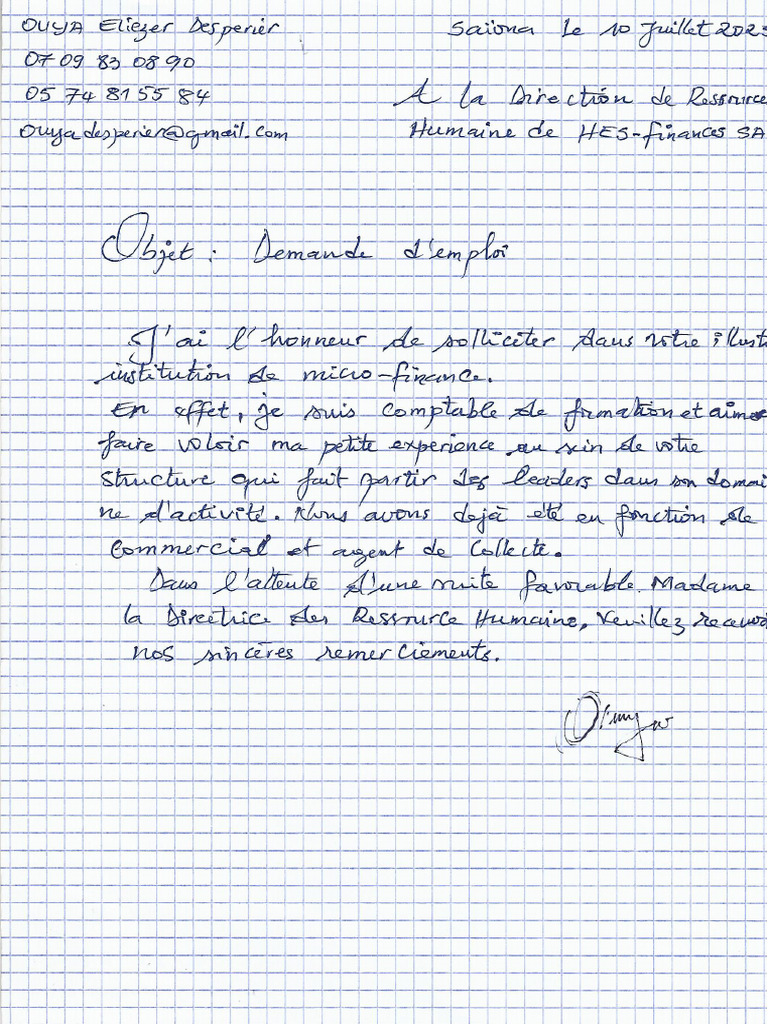 OUYA Eliezer Desperier
Saïoua Le 10 Juillet 2023
07 09 83 08 90
05 74 81 55 84
A la Direction de Ressource
ouyadesperier@gmail.com
Humaine de HES-finances SA
Objet : Demande d'emploi
J'ai l'honneur de solliciter dans votre illust
institution de micro-finance.
En effet, je suis comptable de formation et aime
faire valoir ma petite experience au sein de votre
structure qui fait partir des leaders dans son domai
ne d'activité. Nous avons dejà été en fonction de
Commercial et agent de Collecte.
Dans l'attente d'une suite favorable. Madame
la Directrice des Ressource Humaine, Veuillez recevoi
nos sincères remerciements.